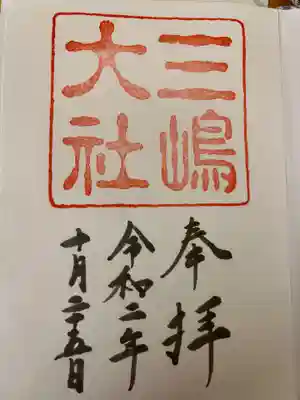 三嶋
大社
奉拝
令和二年
十月二十五日